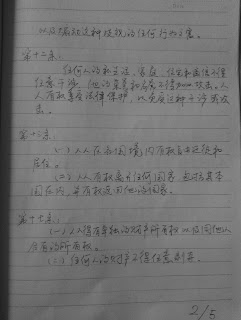 以及煽动这种歧视的任何行为之害。
第十二条:
任何人的私生活、家庭、住宅和通信不得
任意干涉,他的荣誉和名誉不得加以攻击。人
人有权享受法律保护,以免受这种干涉或攻
击。
第十三条:
(一)人人在各国境内有权自由迁徙和
居住。
(二)人人有权离开任何国家,包括其本
国在内,并有权返回他的国家。
第十七条:
(一)人人得有单独的财产所有权以及同他人
合有的所有权。
(二)任何人的财产不得任意剥夺。
2/5